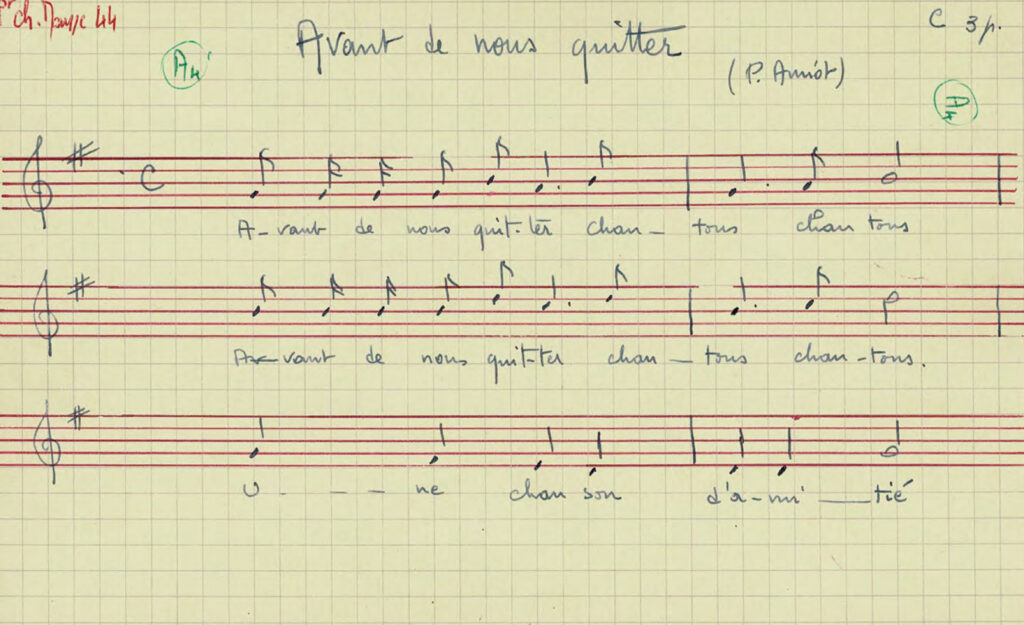 44
C 3p.
Avant de nous quitter
(P. Amiot)
C
A-vant de nous quit-ter chan- tons chan tons
A-vant de nous quit-ter chan-tons chan-tons.
U--- ne chan son d'a-mi-tié